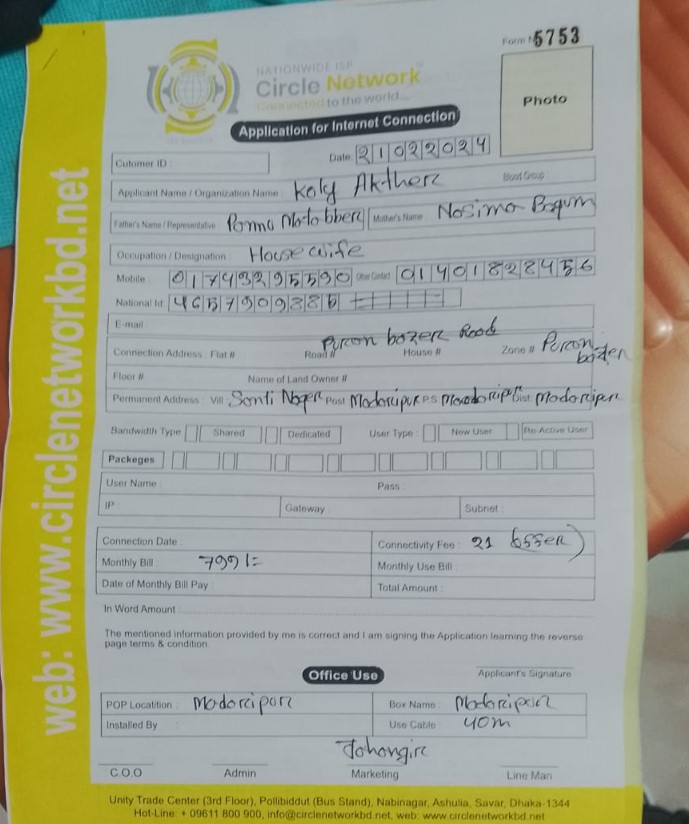 Form # 5753
NATIONWIDE ISP
Circle Network
Connected to the world...
Application for Internet Connection
Photo
Cutomer ID :
Date 21022024
Applicant Name / Organization Name : Koly Akther
Blood Group :
Father's Name / Representative : Mother's Name : Nosima Bagum
Occupation / Designation : House wife
Mobile : 01749295590 Other Contact 01401828456
National Id :
E-mail :
Connection Address : Flat # Road # Puran bazer Rood House # Zone # Puran bazer
Floor # Name of Land Owner #
Permanent Address : Vill : Sonti Noger Post Madaripur P.S Dist Madaripur
Bandwidth Type Shared Dedicated User Type : New User Re-Active User
Packeges
User Name : Pass :
IP : Gateway : Subnet :
Connection Date : Connectivity Fee : 21 (offer)
Monthly Bill : 799/= Monthly Use Bill :
Date of Monthly Bill Pay : Total Amount :
In Word Amount :
The mentioned information provided by me is correct and I am signing the Application learning the reverse
page terms & condition.
Office Use
Applicant's Signature
POP Locatition : Madaripur Box Name : Madaripur
Installed By : Use Cable : 40m
Jahangir
C.O.O Admin Marketing Line Man
Unity Trade Center (3rd Floor), Pollibiddut (Bus Stand), Nabinagar, Ashulia, Savar, Dhaka-1344
Hot-Line: + 09611 800 900, info@circlenetworkbd.net, web: www.circlenetworkbd.net
web: www.circlenetworkbd.net